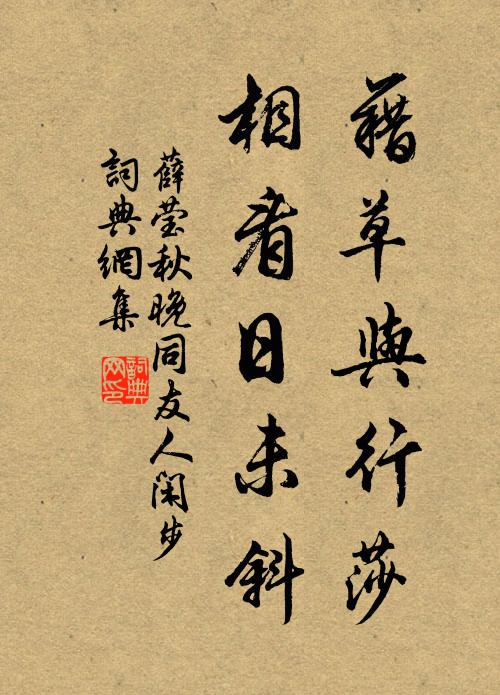 藉草與行莎
相看日未斜
薛瑩秋晚同友人閑步
詞典網集
詞典
网印